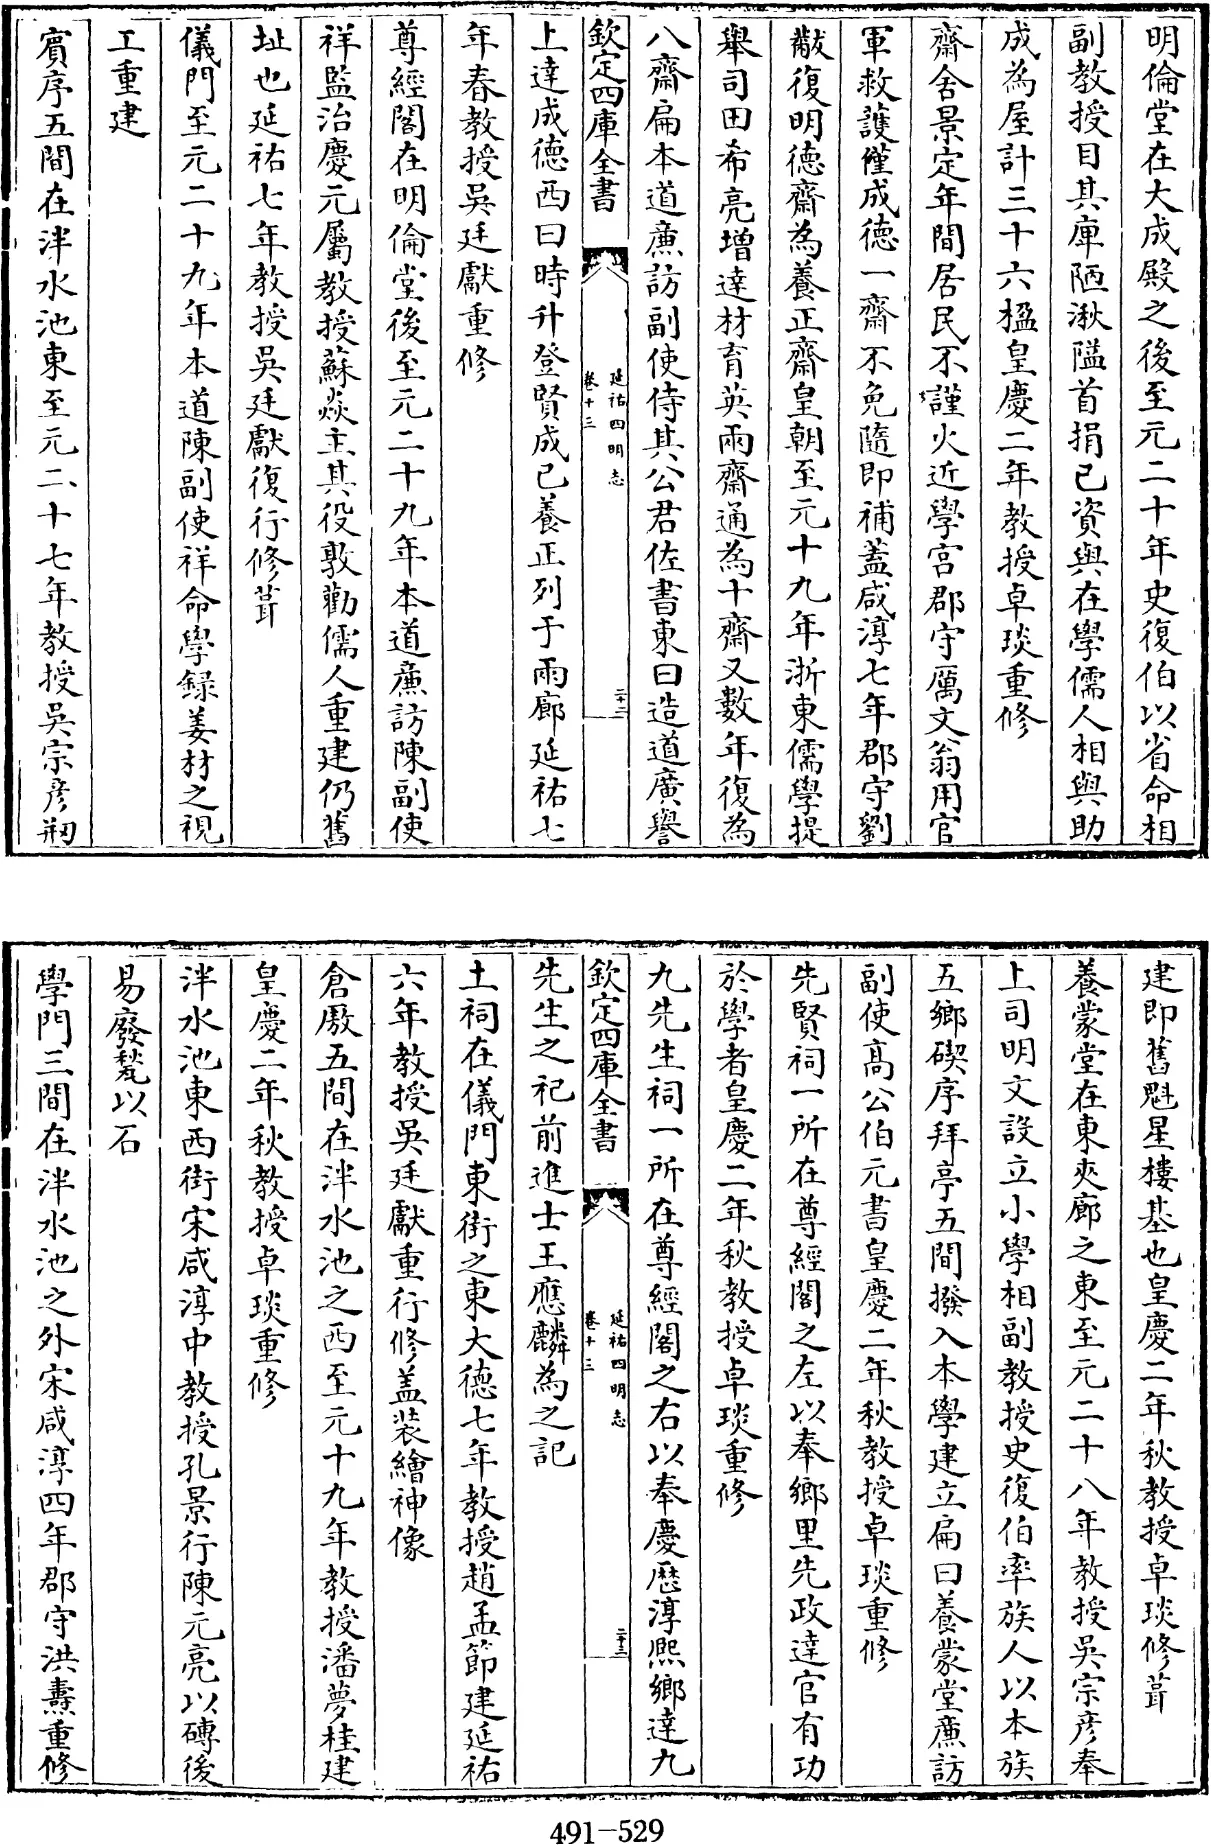 明倫堂在大成殿之後至元二十年史復伯以省命相
副教授目其庫陋湫隘首捐已資與在學儒人相與助
成為屋計三十六楹皇慶二年教授卓琰重修
齋舍景定年間居民不謹火近學宮郡守厲文翁用官
軍救護僅成德一齋不免隨即補蓋咸淳七年郡守劉
黻復明德齋為養正齋皇朝至元十九年浙東儒學提
舉司田希亮增達材育英兩齋通為十齋又數年復為
八齋扁本道亷訪副使侍其公君佐書東曰造道廣譽
欽定四庫全書
延祐四明志
卷十三
二十二
上達成德西曰時升登賢成已養正列于兩廊延祐七
年春教授吳廷獻重修
尊經閣在明倫堂後至元二十九年本道亷訪陳副使
祥監治慶元屬教授蘇焱主其役敦勸儒人重建仍舊
址也延祐七年教授吳廷獻復行修葺
儀門至元二十九年本道陳副使祥命學録姜材之視
工重建
賓序五間在泮水池東至元二十七年教授吳宗彦剏
建即舊魁星樓基也皇慶二年秋教授卓琰修葺
養蒙堂在東夾廊之東至元二十八年教授吳宗彦奉
上司明文設立小學相副教授史復伯率族人以本族
五鄉碶序拜亭五間撥入本學建立扁曰養蒙堂亷訪
副使髙公伯元書皇慶二年秋教授卓琰重修
先賢祠一所在尊經閣之左以奉鄉里先政達官有功
於學者皇慶二年秋教授卓琰重修
九先生祠一所在尊經閣之右以奉慶歴淳熈鄉達九
欽定四庫全書
延祐四明志
卷十三
二十三
先生之祀前進士王應麟為之記
土祠在儀門東街之東大德七年教授趙孟節建延祐
六年教授吳廷獻重行修蓋装繪神像
倉厫五間在泮水池之西至元十九年教授潘夢桂建
皇慶二年秋教授卓琰重修
泮水池東西街宋咸淳中教授孔景行陳元亮以磚後
易廢甃以石
學門三間在泮水池之外宋咸淳四年郡守洪燾重修
491-529